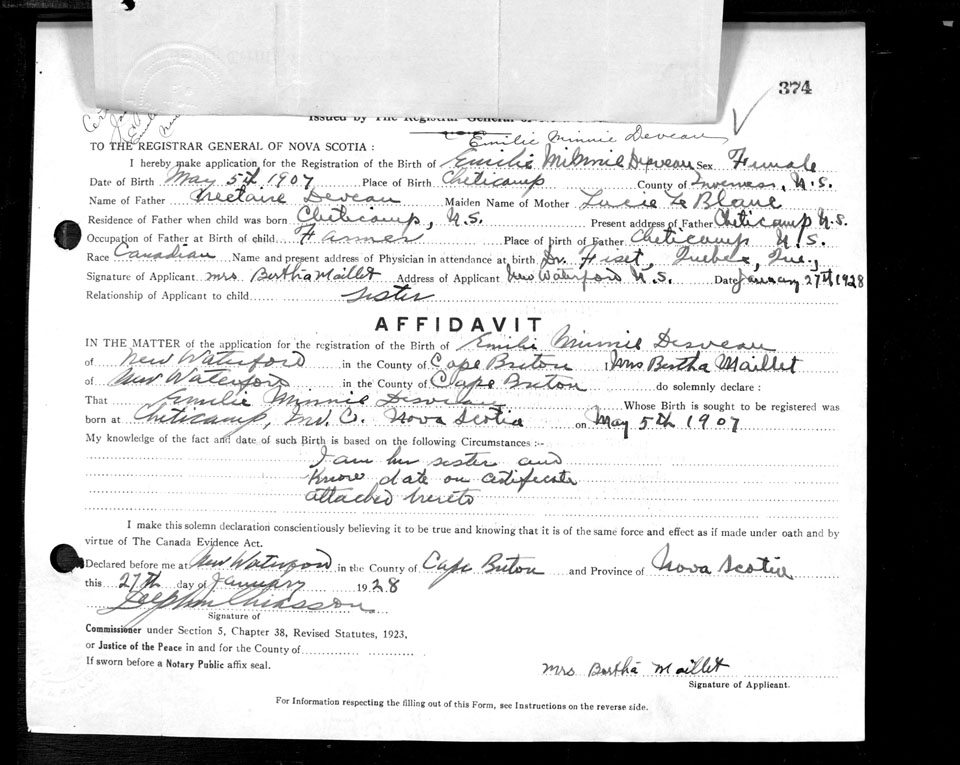 374
Issued by The Registrar General of
Emilie Minnie Deveau
TO THE REGISTRAR GENERAL OF NOVA SCOTIA :
I hereby make application for the Registration of the Birth of Emilie Minnie Desveau Sex Female
Date of Birth May 5th 1907 Place of Birth Cheticamp County of Inverness, N.S.
Name of Father Deveau Maiden Name of Mother Lucie Le Blanc
Residence of Father when child was born Cheticamp, N.S. Present address of Father Cheticamp N.S.
Occupation of Father at Birth of child Farmer Place of birth of Father Cheticamp N.S.
Race Canadian Name and present address of Physician in attendance at birth Dr. Fiset, Quebec, Que.,
Signature of Applicant Mrs Bertha Maillet Address of Applicant New Waterford N.S. Date January 27th 1928
Relationship of Applicant to child Sister
AFFIDAVIT
IN THE MATTER of the application for the registration of the Birth of Emilie Minnie Desveau
of New Waterford in the County of Cape Breton , Mrs Bertha Maillet
of New Waterford in the County of Cape Breton do solemnly declare :
That Emilie Minnie Desveau Whose Birth is sought to be registered was
born at Cheticamp, Nova Scotia on May 5th 1907
My knowledge of the fact and date of such Birth is based on the following Circumstances :--
I am her sister and
know date on certificate
attached hereto
I make this solemn declaration conscientiously believing it to be true and knowing that it is of the same force and effect as if made under oath and by
virtue of The Canada Evidence Act.
Declared before me at New Waterford in the County of Cape Breton and Province of Nova Scotia
this 27th day of January 1928
Chiasson
Signature of
Commissioner under Section 5, Chapter 38, Revised Statutes, 1923,
or Justice of the Peace in and for the County of
If sworn before a Notary Public affix seal.
Mrs Bertha Maillet
Signature of Applicant.
For Information respecting the filling out of this Form, see Instructions on the reverse side.